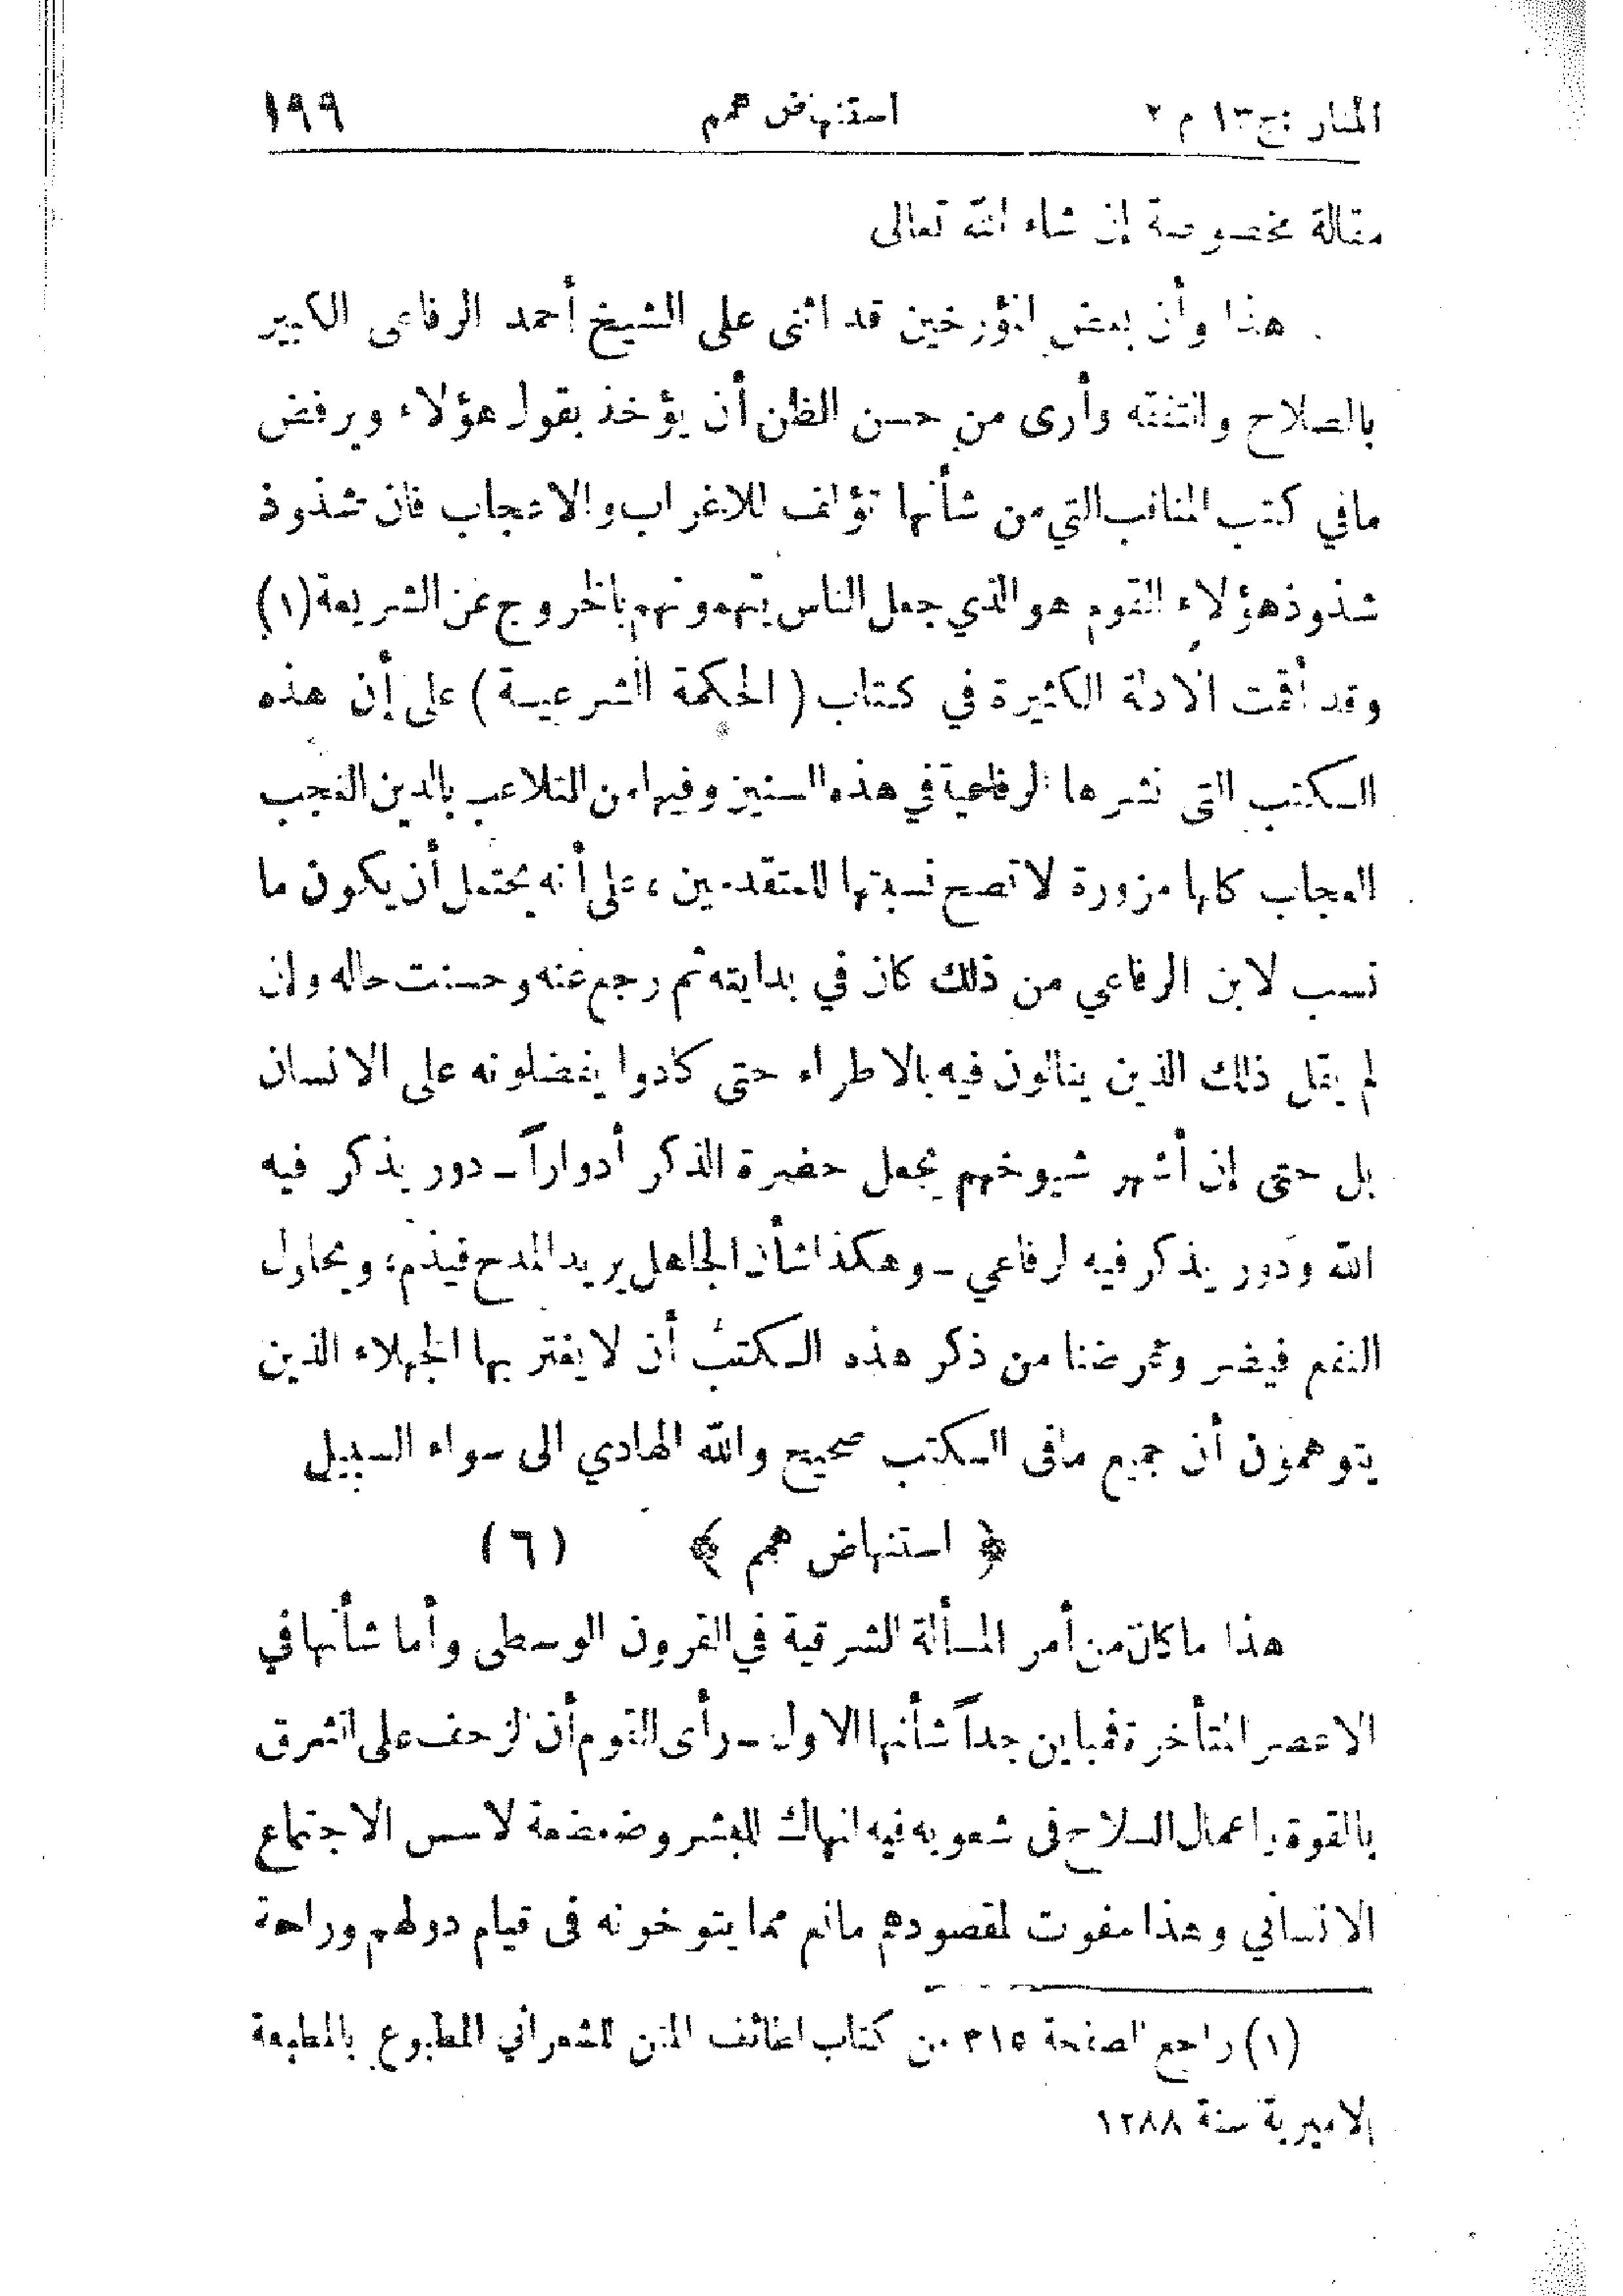 المنار : ج ١٣ م ٢ استنهاض همم ١٩٩
مقالة مخصوصة إن شاء الله تعالى
هذا وأن بعض المؤرخين قد اثنى على الشيخ أحمد الرفاعى الكبير
بالصلاح والتفقه وأرى من حسن الظن أن يؤخذ بقول هؤلاء ويرفض
مافي كتب المناقب التي من شأنها تؤلف للاغراب والاعجاب فان شذوذ
شذوذ هؤلاء القوم هو الذي جعل الناس يتهمونهم بالخروج عن الشريعة (١)
وقد أقمت الادلة الكثيرة في كتاب ( الحكمة الشرعية ) على إن هذه
الكتب التى نشرها الرفاعية في هذه السنين وفيها من التلاعب بالدين العجب
العجاب كلها مزورة لا تصح نسبتها للمتقدمين ، على أنه يحتمل أن يكون ما
نسب لابن الرفاعي من ذلك كان في بدايته ثم رجع عنه وحسنت حاله وإن
لم يقل ذلك الذين يغالون فيه بالاطراء حتى كادوا يفضلونه على الانسان
بل حتى إن أشهر شيوخهم يجعل حضرة الذكر أدواراً ـ دور يذكر فيه
الله ودور يذكر فيه لرفاعي ـ وهكذا شأن الجاهل يريد المدح فيذم ، ويحاول
النفع فيضر وغرضنا من ذكر هذه الكتب أن لا يغتر بها الجهلاء الذين
يتوهمون أن جميع مافى الكتب صحيح والله الهادي الى سواء السبيل
﴿ استنهاض همم ﴾ (٦)
هذا ما كان من أمر المسألة الشرقية في القرون الوسطى وأما شأنها في
الاعصر المتأخرة فمباين جداً شأنها الاول ـ رأى القوم أن الزحف على الشرق
بالقوة واعمال السلاح فى شعوبه فيه انهاك للبشر وضعضعة لاسس الاجتماع
الانساني وهذا مفوت لمقصودهم مانع مما يتوخونه فى قيام دولهم وراحة
(١) راجع الصفحة ٣١٥ من كتاب لطائف المنن للشعراني المطبوع بالمطبعة
الاميرية سنة ١٢٨٨